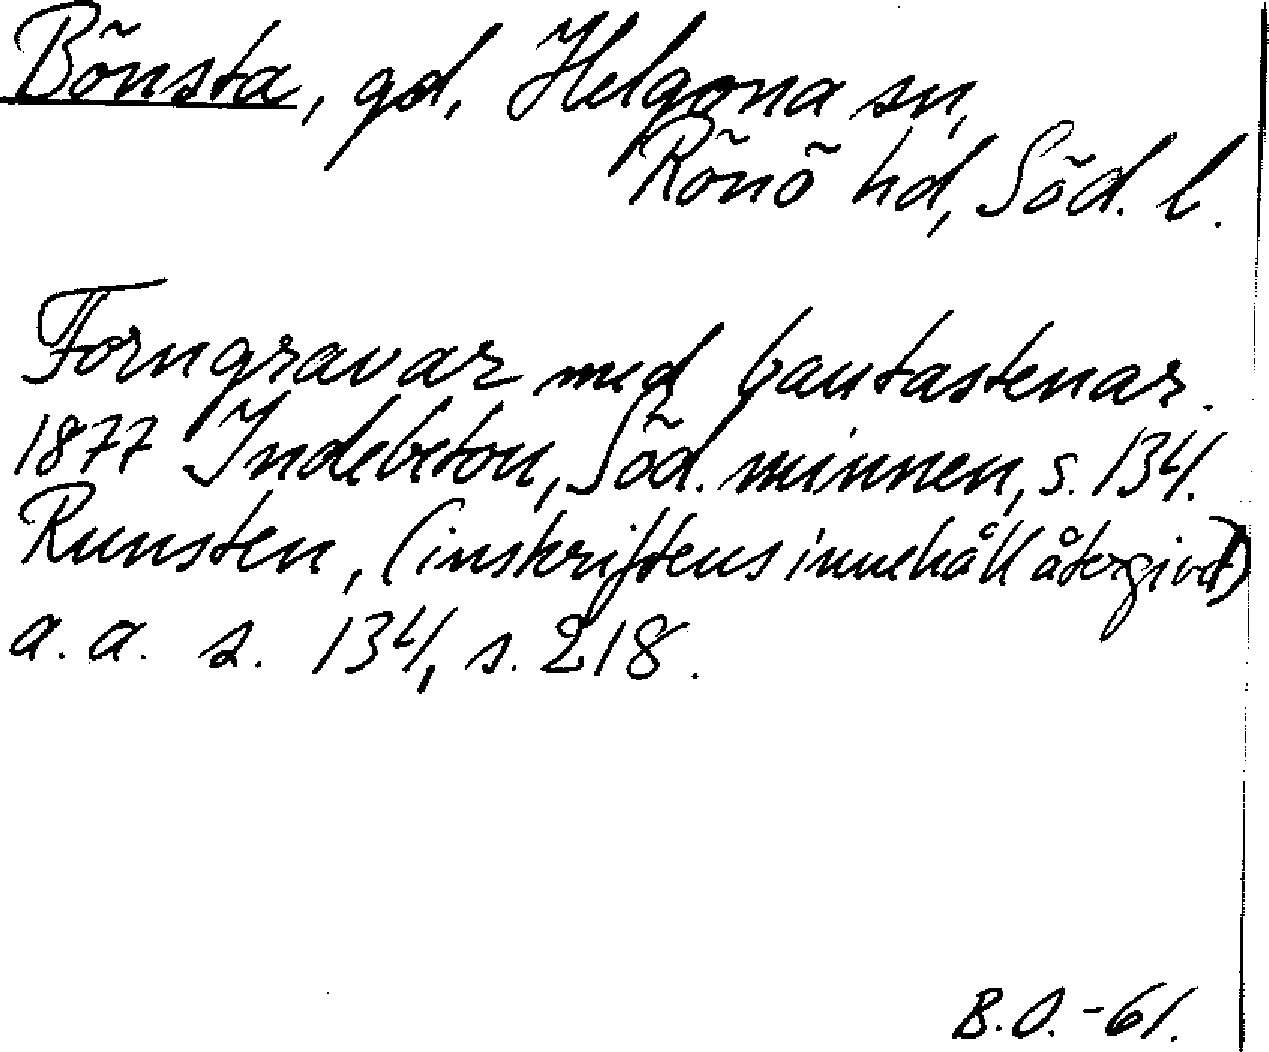 Bönsta, gd, Helgona sn,
Rönö hd, Söd. l.
Forngravar med bautastenar.
1877 Indebetou, Söd. minnen, s. 134.
Runsten, (inskriftens innehåll återgivet)
a. a. s. 134, s. 218.
B.O. -61.